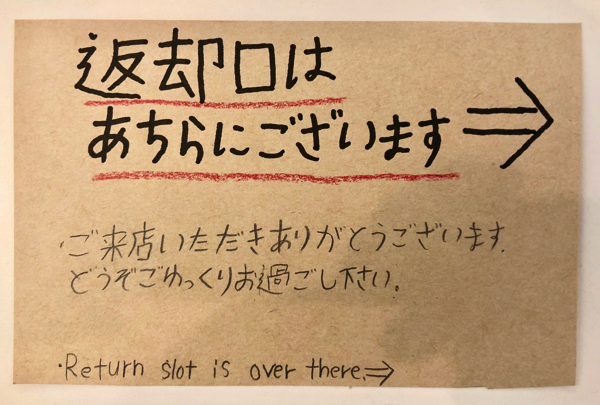 返却口は
あちらにございます ⇒
・ご来店いただきありがとうございます.
どうぞごゆっくりお過ごし下さい。
・Return slot is over there.⇒